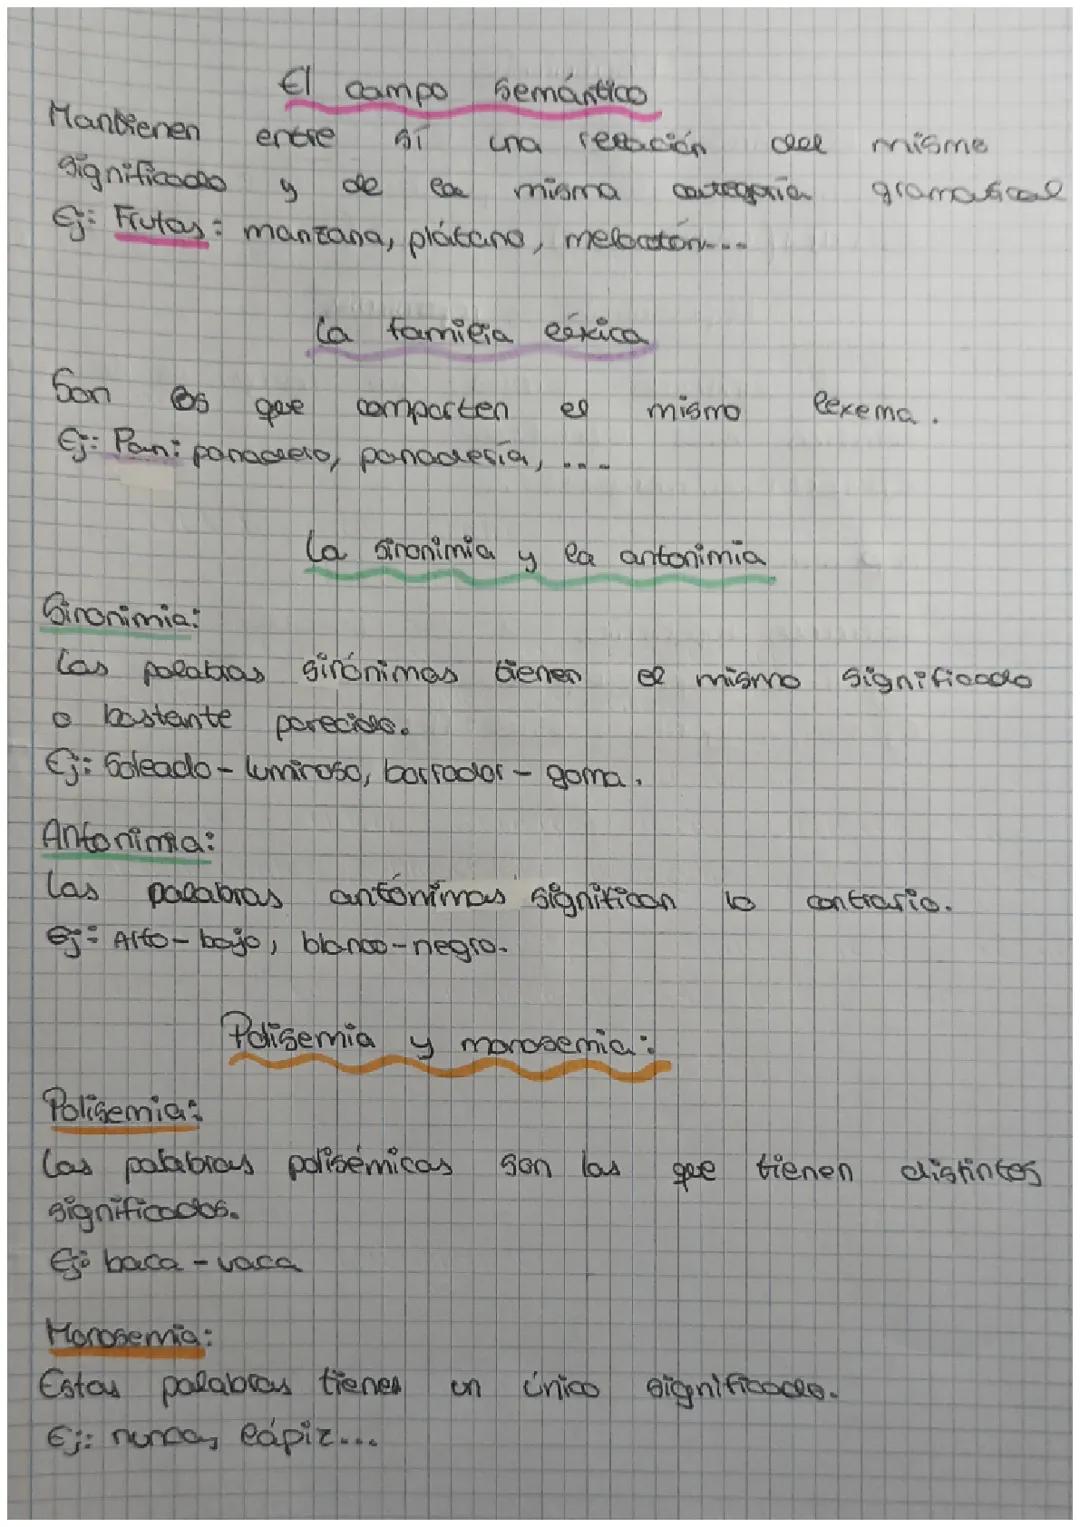 El campo semántico
Mantienen entre sí una relación del mismo
significado y de la misma categoría gramatical
Ej: Frutas: manzana, plátano, melocotón...
La familia léxica
Son los que comparten el mismo lexema.
Ej: Pan: panadero, panadería, ...
La sinonimia y la antonimia
Sinonimia:
Las palabras sinónimas tienen el mismo significado
o bastante parecido.
Ej: Soleado - luminoso, borrador - goma.
Antonimia:
Las palabras antónimas significan lo contrario.
Ej: Alto - bajo, blanco - negro.
Polisemia y monosemia:
Polisemia:
Las palabras polisémicas son las que tienen distintos
significados.
Ej: baca - vaca
Monosemia:
Estas palabras tienen un único significado.
Ej: nunca, lápiz...